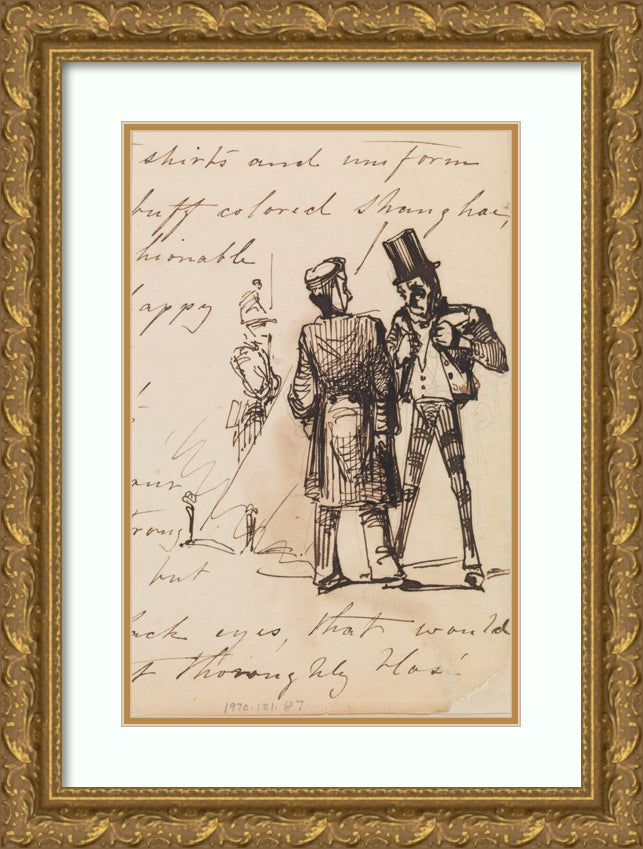 shirts and uniform
buff colored shanghae,
hionable
appy
but
eyes, that would
thoroughly
1970.121.87